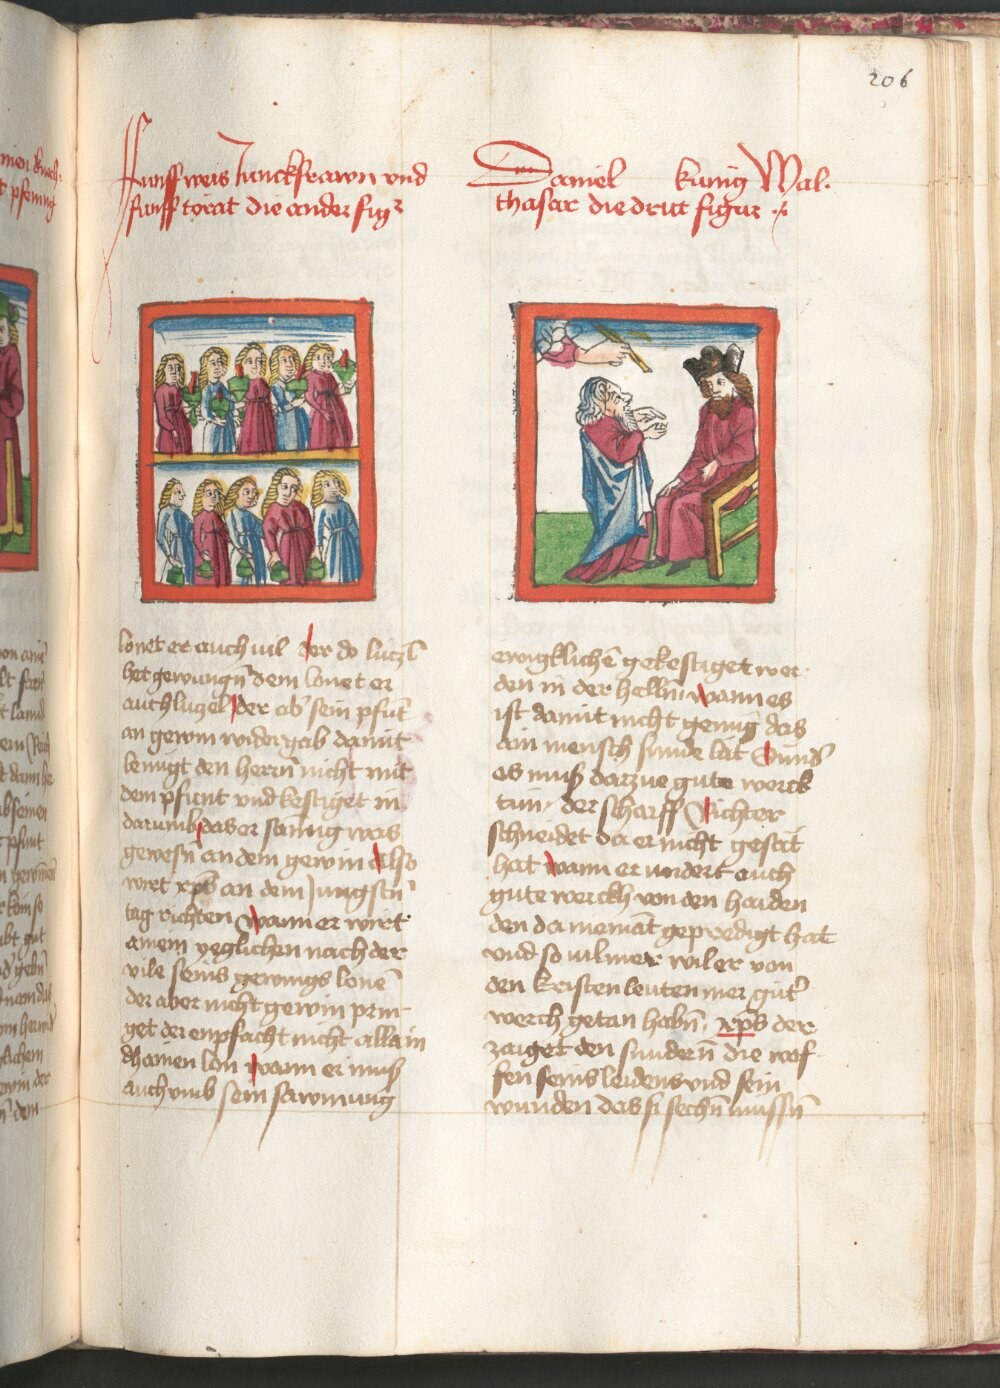 206
Funff weis Junckfrawn vnd
funff torat die ander figr
Daniel kunig Wal-
thasar die drit figur
lonet er auch vil Der do lutzl
het gewungn dem lonet er
auch luzel der ab sein pfunt
an gewin wider gab damit
benugt den herrn nicht mit
dem pfunt vnd kestiget in
darumb das er sawmig was
gewesn an dem gewin Also
wirt xps an dem Jungstn
tag richten wann er wirt
ainem yeglichen nach der
vile seins gewings lone
der aber nicht gewin prin-
get der enpfacht nicht allain
chainen lon wann er mus
auch vmb sein sawmung
ewigklichn gekestiget wer-
den in der helln wann es
ist damit nicht genug das
ain mensch sunde lat Sund
es mus darzue gute werck
tun der scharff Richter
schneidet da er nicht gesat
hat wann er vodert auch
gute werckh von den haiden
den da niemat geprdigt hat
vnd so vil mer wil er von
den kristen leuten mer gut
werch getan habn xps der
zaiget den sundern die waf-
fen seins leidens vnd sein
wunden das si sechn mussn